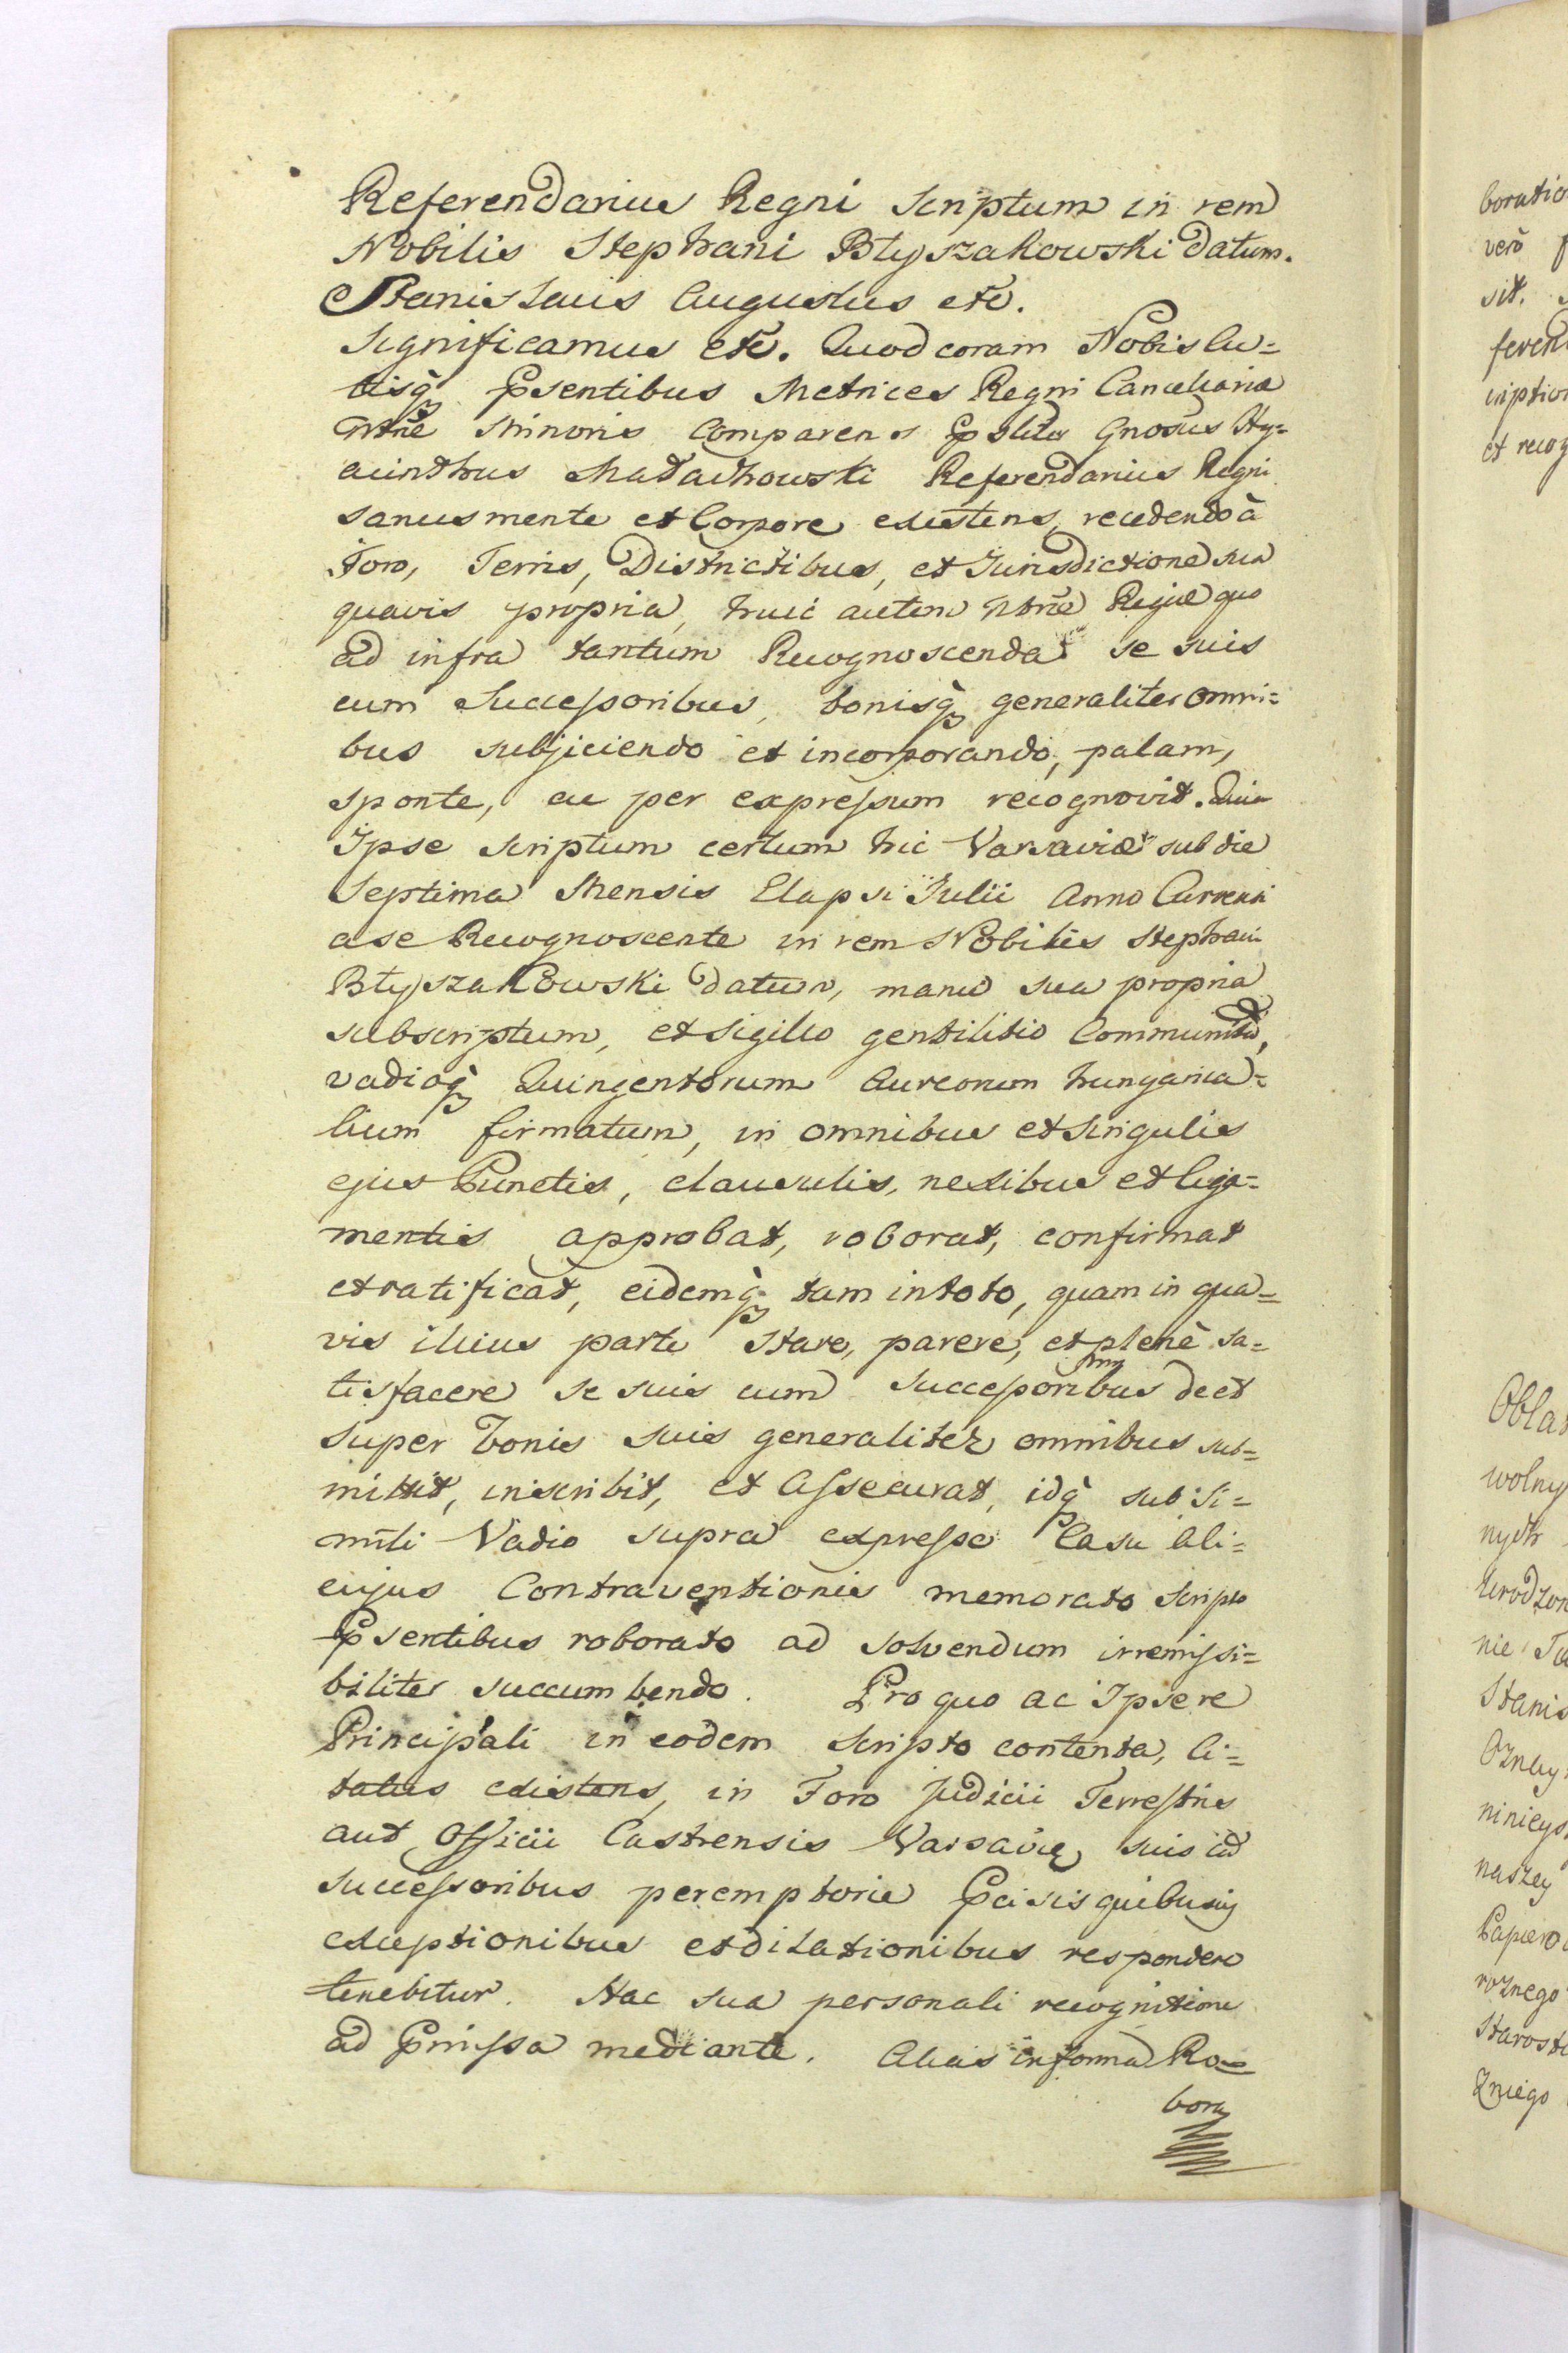 Referendarius Regni Scriptum in rem
Nobilis Stephani Błyszakowski datum.
Stanislaus Augustus etc.
Significamus etc. Quod coram Nobis Au=
tisq̀3 Psentibus Metrices Regni Cancellariæ
Ntrae Minoris Comparens Psliter Gnosus Hy=
acinthus Małachowski Referendarius Regni
sanus mente et Corpore existens, recedendo à
Foro, Terris, Districtibus, et Jurisdictione sua
quavis propria, huic autem Ntrae Regiæ quo
ad infra tantum Recognoscenda se suis
cum Successoribus, bonisq̀3 generaliter omni=
bus subjiciendo et incorporando, palam,
sponte, ac per expressum recognovit. Quia
Ipse scriptum certum hic Varsaviæ sub die
Septima Mensis Elapsi Julii Anno Currenti
a se Recognoscente in rem Nobilis Stephani
Błyszakowski datum, manu sua propria
subscriptum, et sigillo gentilitio Communitũ,
vadioq̀3 Quingentorum Aureorum hungarica=
lium firmatum, in omnibus et singulis
ejus Punctis, clausulis, nexibus et liga=
mentis approbat, roborat, confirmat
et ratificat, eidemq̀3 tam in toto, quam in qua=
vis illius parte stare, parere, et plenè sa=
tisfacere se suis cum successoribus de et
super bonis suis generaliter omnibus sub=
mittit, inscribit, et Assecurat, idq̀3 sub si=
mili Vadio supra expresso Casu ali=
cujus Contraventionis memorato scripto
Psentibus roborato ad solvendum irremissi=
biliter succumbendo. Pro quo ac Ipse re
Principali in eodem scripto contenta, ci=
tatus existens, in Foro Judicii Terrestris
aut Officii Castrensis Varsaviæ suis cũ
successoribus peremptorie Pcisis quibusvis
exceptionibus et dilationibus respondere
tenebitur. Hac sua personali recognitione
ad Pmissa mediante. Alias in forma Ro=
bora
boratio
verò
sit.
feren
iiption
et recog
Oblat
wolny
nych
Urodzon
nie
Stanis
Oznay
ninieys
naszey
Papiero
roznego
Starost
Zniego